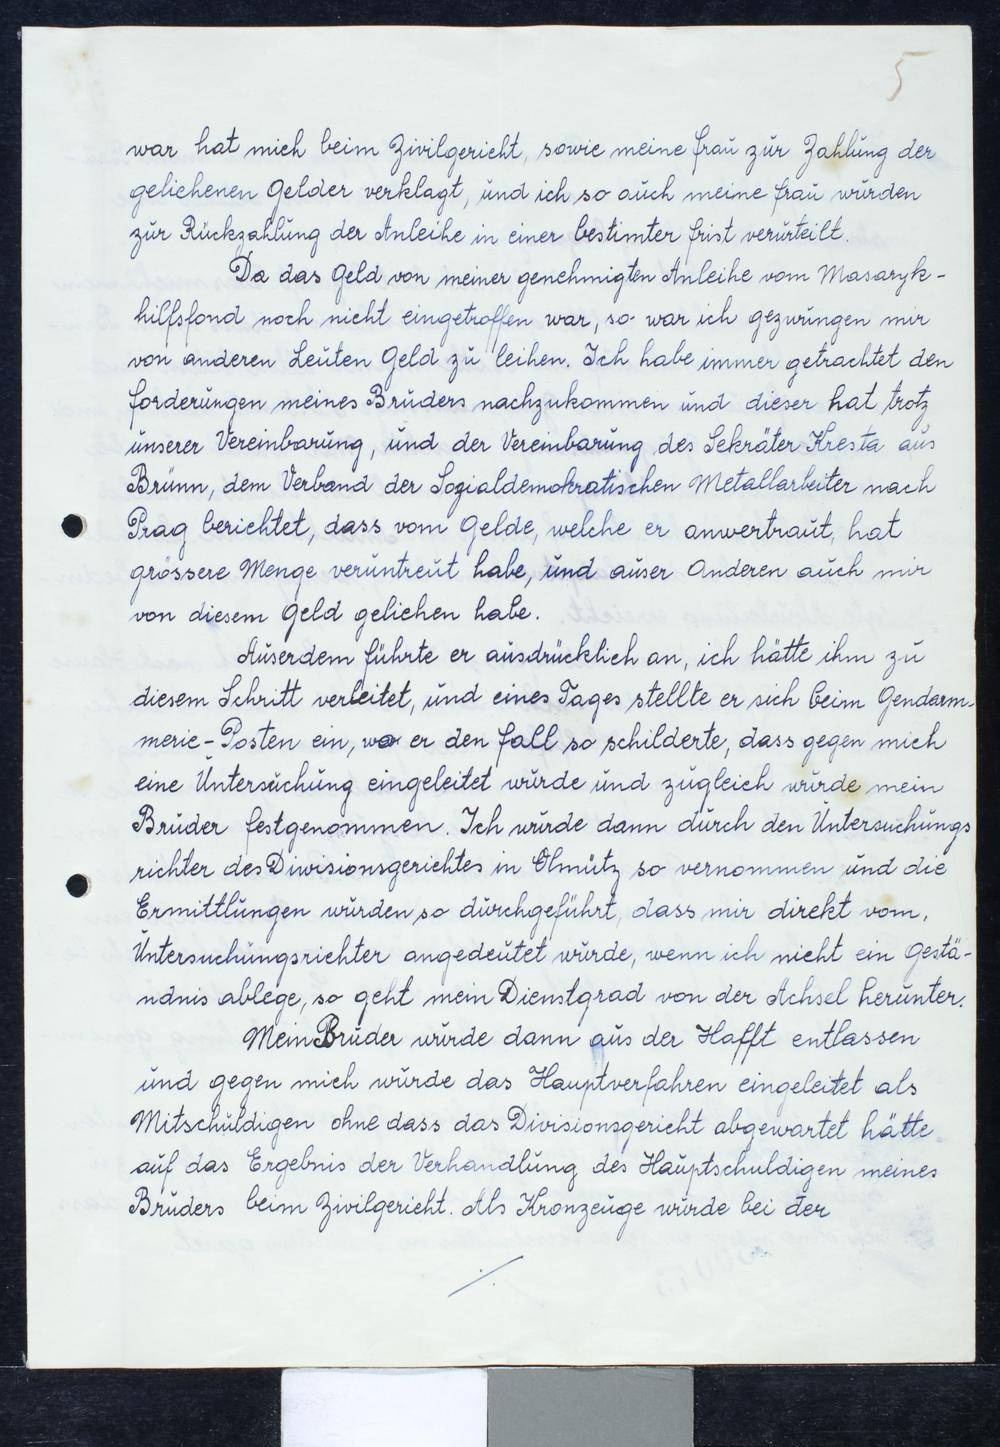 5
war hat mich beim Zivilgericht, sowie meine Frau zur Zahlung der
geliehenen Gelder verklagt, und ich so auch meine Frau wurden
zur Rückzahlung der Anleihe in einer bestimter Frist verurteilt.
Da das Geld von meiner genehmigten Anleihe vom Masaryk-
hilfsfond noch nicht eingetroffen war, so war ich gezwungen mir
von anderen Leuten Geld zu leihen. Ich habe immer getrachtet den
Forderungen meines Bruders nachzukommen und dieser hat trotz
unserer Vereinbarung, und der Vereinbarung des Sekräter Kresta aus
Brünn, dem Verband der Sozialdemokratischen Metallarbeiter nach
Prag berichtet, dass vom Gelde, welche er anwertraut, hat
grössere Menge veruntreut habe, und auser Anderen auch mir
von diesem Geld geliehen habe.
Auserdem führte er ausdrücklich an, ich hätte ihm zu
diesem Schritt verleitet, und eines Tages stellte er sich beim Gendarm-
merie-Posten ein, wo er den Fall so schilderte, dass gegen mich
eine Untersuchung eingeleitet wurde und zugleich wurde mein
Bruder festgenommen. Ich wurde dann durch den Untersuchungs
richter des Diwisionsgerichtes in Olmütz so vernommen und die
Ermittlungen wurden so durchgeführt, dass mir direkt vom,
Untersuchungsrichter angedeutet wurde, wenn ich nicht ein Gestä-
ndnis ablege, so geht mein Dienstgrad von der Achsel herunter.
Mein Bruder wurde dann aus der Hafft entlassen
und gegen mich wurde das Hauptverfahren eingeleitet als
Mitschuldigen ohne dass das Divisionsgericht abgewartet hätte
auf das Ergebnis der Verhandlung des Hauptschuldigen meines
Bruders beim Zivilgericht. Als Kronzeuge wurde bei der
./.